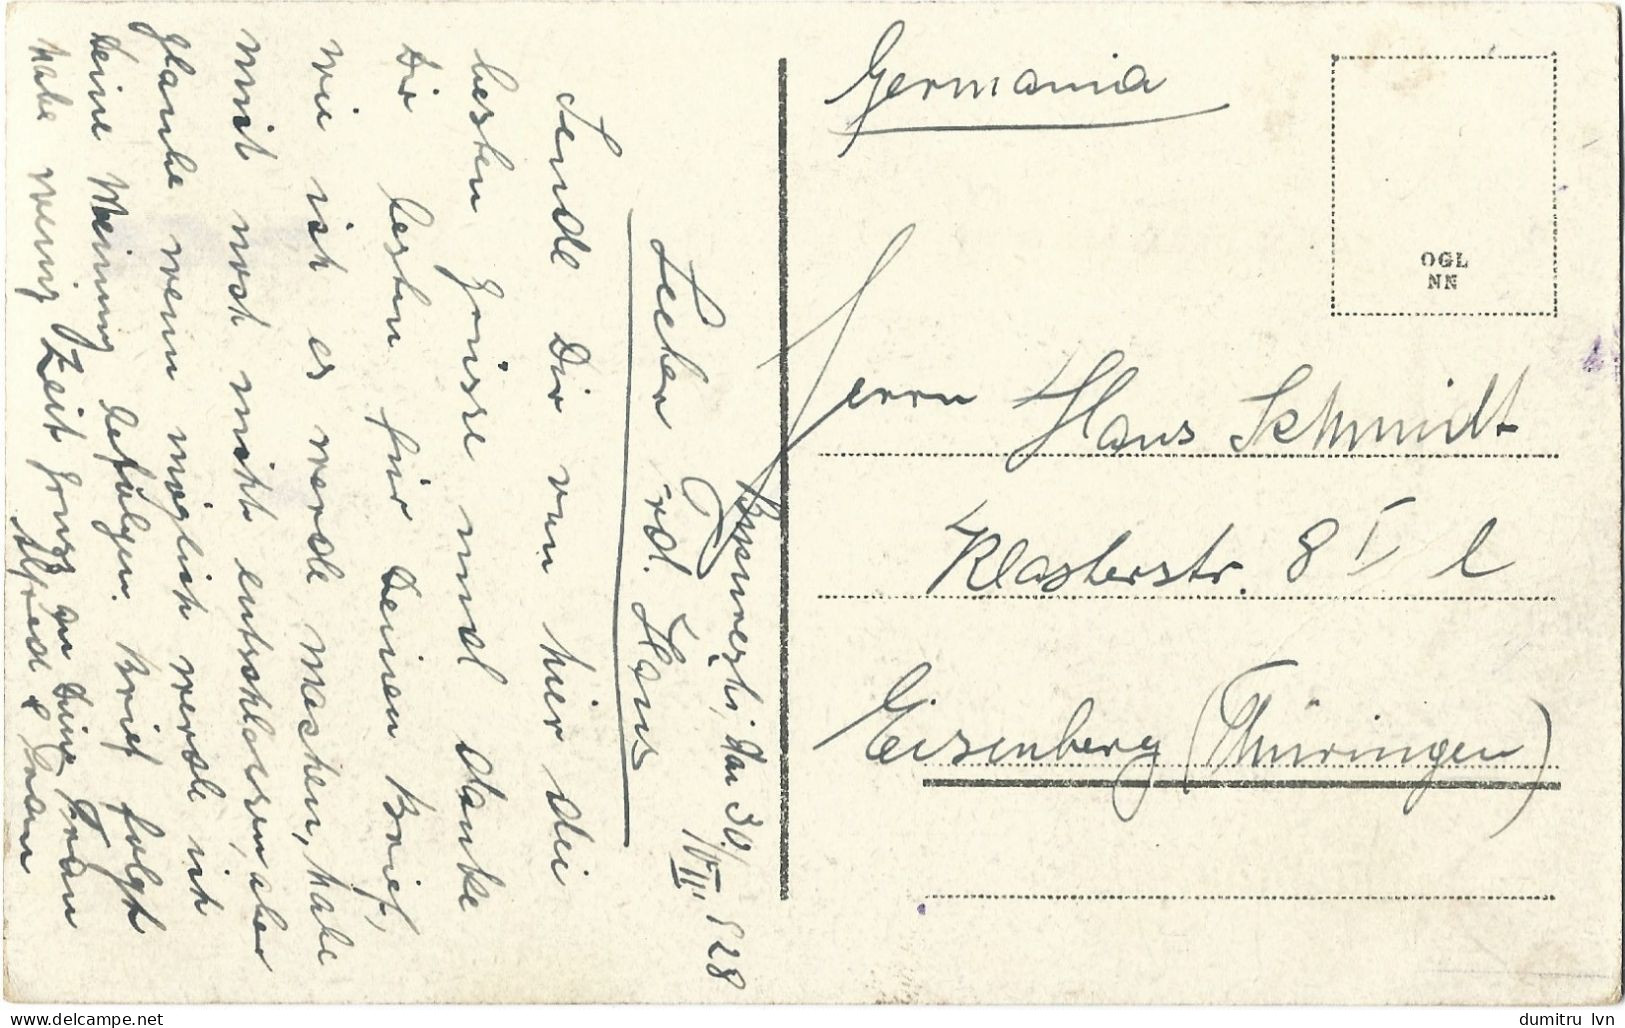 Germania
OGL
NN
Herrn Hans Schmidt
Klosterstr. 8 I l
Eisenberg (Thüringen)
Bukureşti, den 30./VII. 28
Lieber Frd. Hans
Sende Dir von hier die
besten Grüsse und danke
Dir bestens für Deinen Brief,
wie ich es werde machen, habe
mich noch nicht entschlossen, aber
glaube wenn möglich werde ich
Deine Meinung befolgen. Brief folgt
habe wenig Zeit Gruss an Deine Frau
Alfred & Frau
dumitru lvn